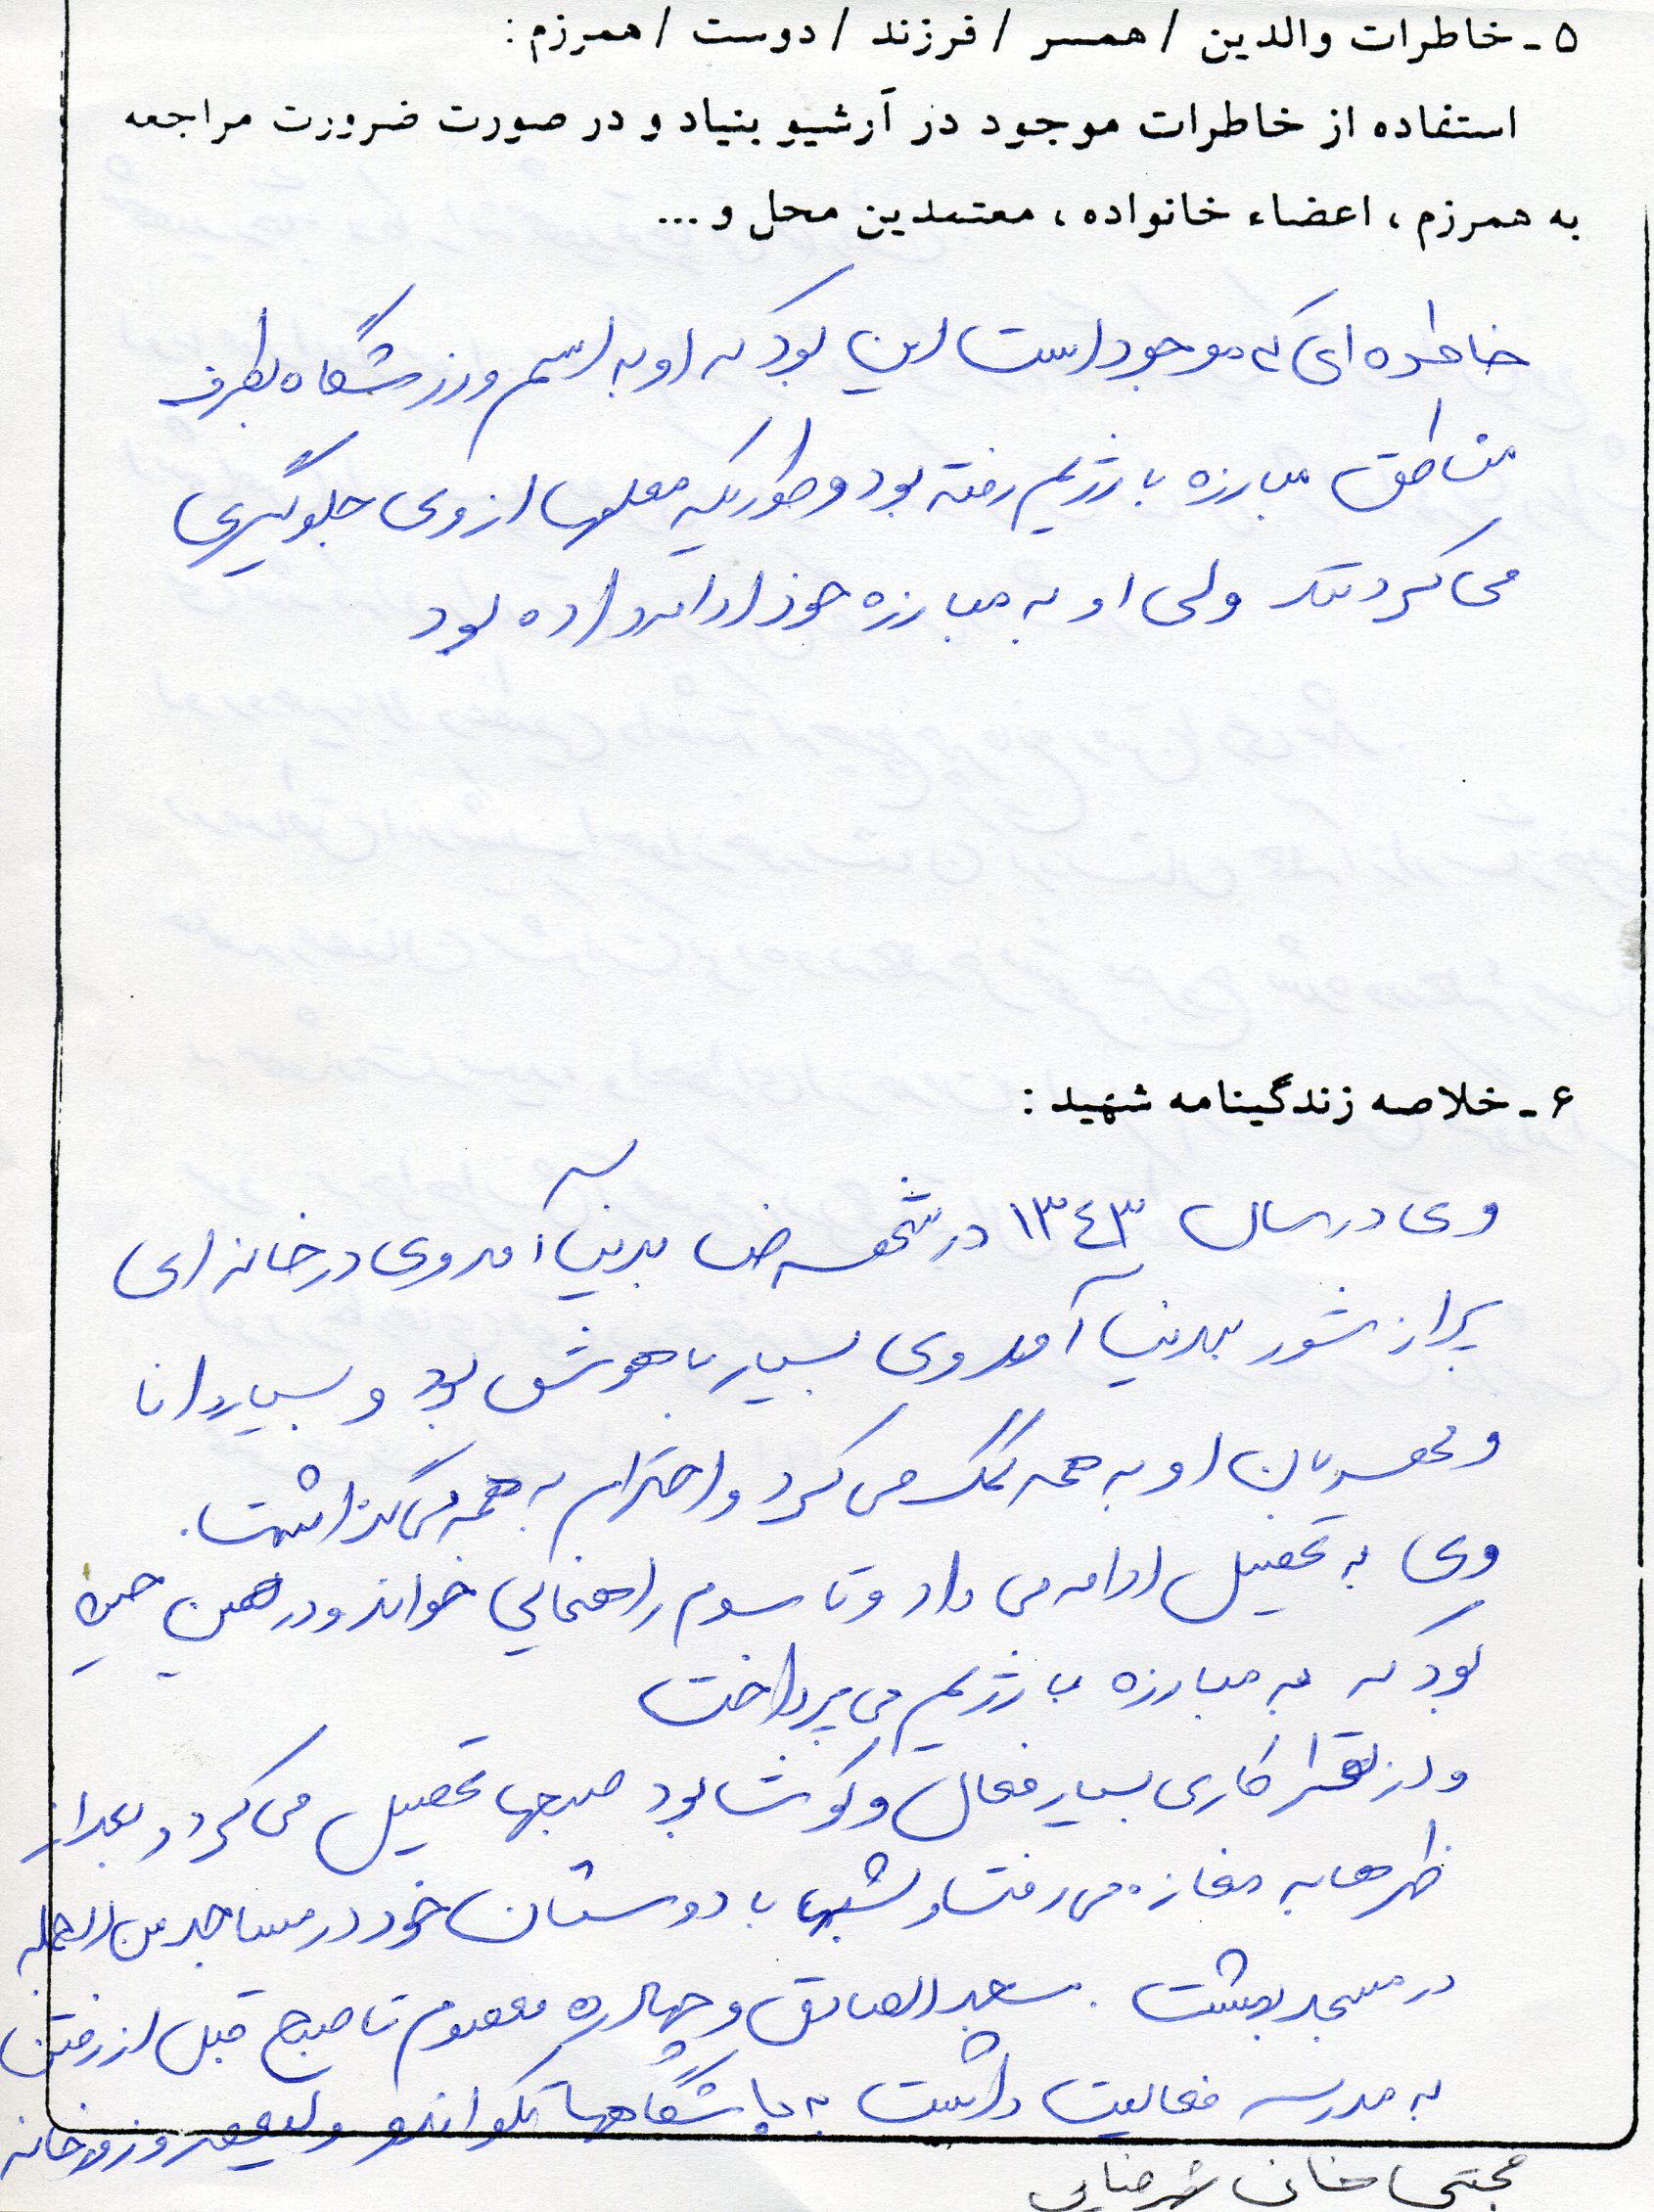 ۵ - خاطرات والدین / همسر / فرزند / دوست / همرزم :
استفاده از خاطرات موجود در آرشیو بنیاد و در صورت ضرورت مراجعه
به همرزم ، اعضاء خانواده ، معتمدین محل و ...
خاطره ای که موجود است این بود که او به اسم ورزشگاه بطرف
مناطق مبارزه با رژیم رفته بود و طوریکه معلمها از وی جلوگیری
می کردند ولی او به مبارزه خود ادامه داده بود
۶ - خلاصه زندگینامه شهید :
وی در سال ۱۳۴۳ در شهرضا بدنیا آمد وی در خانه ای
پر از شور بدنیا آمد وی بسیار باهوش بود و بسیار دانا
و مهربان او به همه کمک می کرد و احترام به همه می گذاشت.
وی به تحصیل ادامه می داد و تا سوم راهنمایی خواند و در همین
بود که به مبارزه با رژیم می پرداخت
و از نظر کاری بسیار فعال و کوشا بود صبحها تحصیل می کرد و بعد از
ظهرها به مغازه می رفت و شبها با دوستان خود در مساجد من الجمله
در مسجد بهشت . مسجد الصادق و چهارده معصوم تا صبح قبل از رفتن
به مدرسه فعالیت داشت به باشگاهها تکواندو و زورخانه
مجتبی خانی شهرضایی